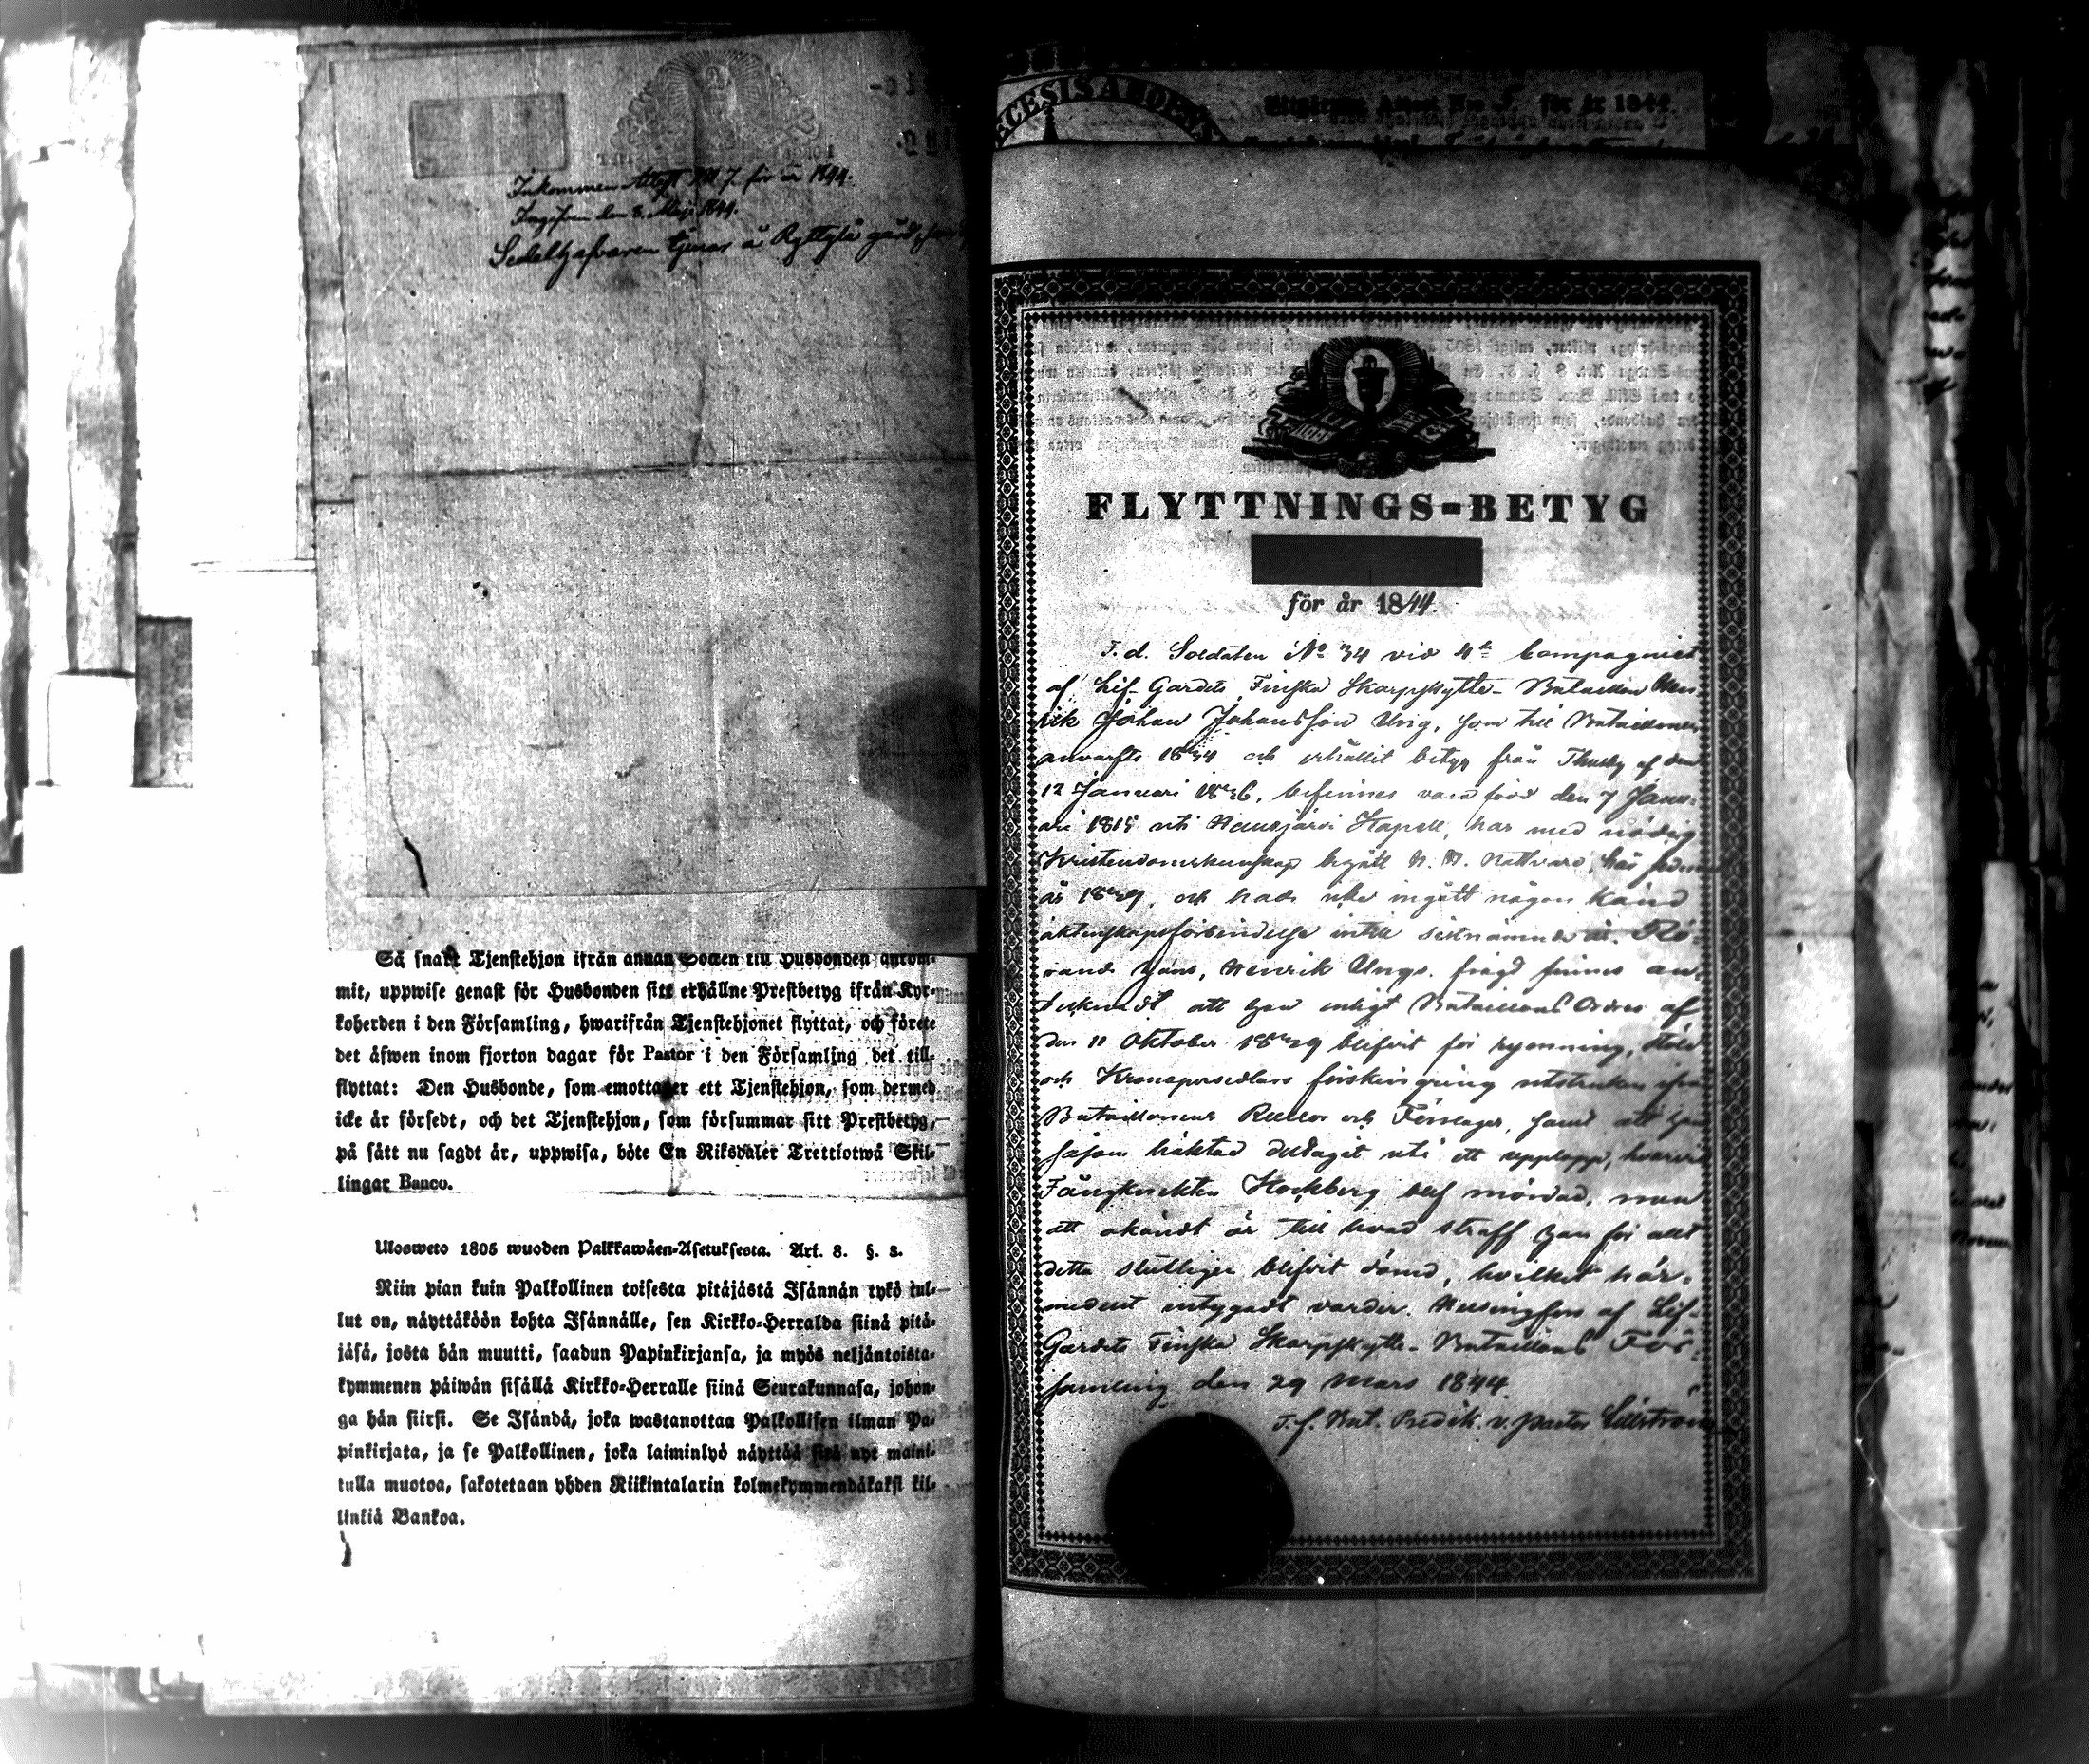 Inkommen Attest N:o 7. för år 1844.
den 8. Maji 1844.
Sedelhafvaren tjenar å Ryttylä gård
Så snart Tjenstehjon ifrån annan Socken till Husbonden ankom-
mit, uppwise genast för Husbonden sitt erhållne Prestbetyg ifrån Kyr-
koherden i den Församling, hwarifrån Tjenstehjonet flyttat, och förete
det äfwen inom fjorton dagar för Pastor i den Församling det till-
flyttat: Den Husbonde, som emottager ett Tjenstehjon, som dermed
icke är försedt, och det Tjenstehjon, som försummar sitt Prestbetyg,
på sätt nu sagdt är, uppwisa, böte En Riksdaler Trettiotwå Skil-
lingar Banco.
Ulosweto 1805 wuoden Palkkawäen-Asetuksesta. Art. 8. §. 3.
Niin pian kuin Palkollinen toisesta pitäjästä Isännän tykö tul-
lut on, näyttäköön kohta Isännälle, sen Kirkko-Herralda siinä pitä-
jäsä, josta hän muutti, saadun Papinkirjansa, ja myös neljäntoista-
kymmenen päiwän sisällä Kirkko-Herralle siinä Seurakunnasa, johon-
ga hän siirsi. Se Isändä, joka wastanottaa Palkollisen ilman Pa-
pinkirjata, ja se Palkollinen, joka laiminlyö näyttää sitä nyt maini-
tulla muotoa, sakotetaan yhden Riikintalarin kolmekymmendäkaksi kil-
linkiä Bankoa.
ECESIS ABOENS
Attest Nro 5. för år 1844.
FLYTTNINGS-BETYG
för år 1844.
F. d. Soldaten No 34 vid 4de Compagniet
af Lif-Gardets Finska Skarpskytte-Bataillon Hen-
rik Johan Johansson Ung, som till Bataillonen
anvärfts 1834 och erhållit betyg från Thusby af den
12 Januari 1836, befinnes vara född den 7 Janu-
ari 1815 uti Hausjärvi Kapell, har med nödig
Kristendomskunskap begått H. H. Nattvard, här sedan
år 1839, och hade icke ingått någon känd
äktenskapsförbindelse intill sistnämnde år. Rö-
rande hans, Henrik Ungs. frägd finnes an-
tecknadt att han enligt Bataillons Ordres af
den 11 Oktober 1839 blifvit för rymning, stöld
och Kronopersedlars förskingring utstruken ifrån
Bataillonens Rullor och Förslager, samt att han
såsom häktad deltagit uti ett upplopp, hvarvid
Fångknekten Hockberg blef mördad, men
att okändt är till hvad straff han för allt
detta slutligen blifvit dömd, hvilket här-
medelst intygadt varder. Helsingfors af Lif-
Gardets Finska Skarpskytte-Bataillons För-
samling den 29 Mars 1844.
T. f. Bat. Predik. v. Pastor